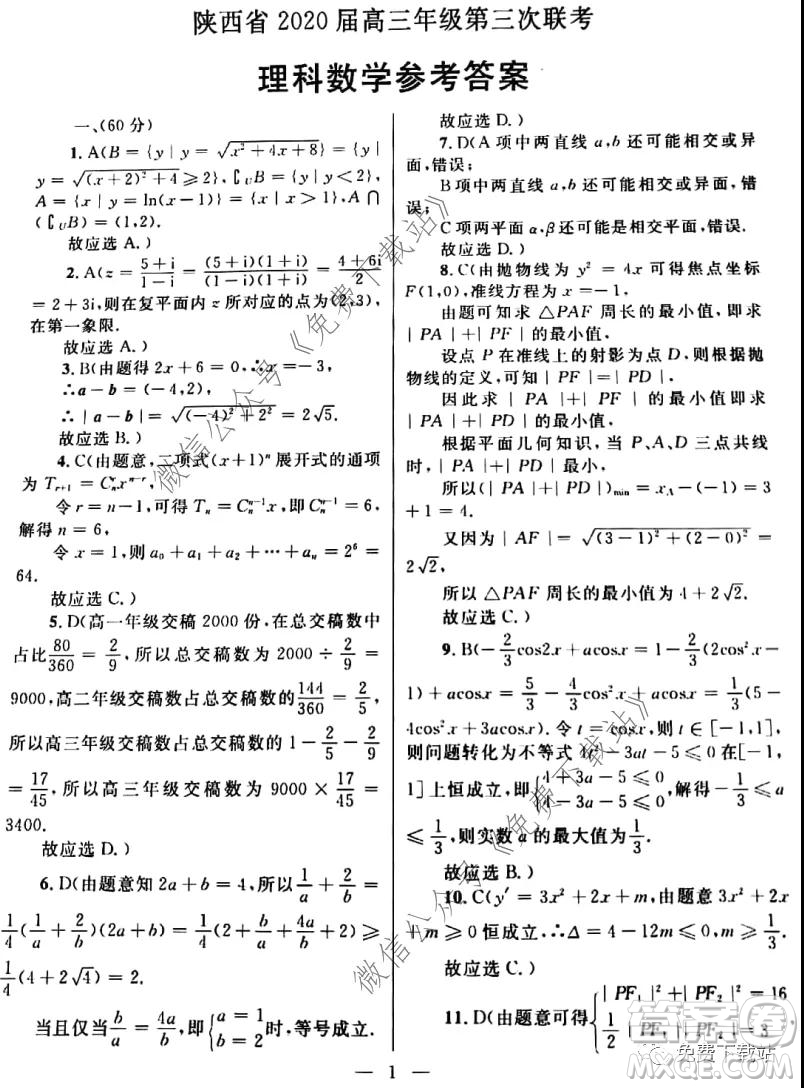 陕西省 2020 届高三年级第三次联考
理科数学参考答案
一、(60 分)
1. A(B = {y | y = √(x²+4x+8)} = {y |
y = √((x+2)²+4) ≥ 2}, ∁_U B = {y | y < 2},
A = {x | y = ln(x−1)} = {x | x > 1}, A ∩
(∁_U B) = (1,2).
故应选 A.)
2. A(z = (5+i)/(1−i) = (5+i)(1+i)/((1−i)(1+i)) = (4+6i)/2
= 2+3i, 则在复平面内 z 所对应的点为(2,3),
在第一象限.
故应选 A.)
3. B(由题得 2x+6 = 0, ∴x = −3,
∴a−b = (−4,2),
∴|a−b| = √((−4)²+2²) = 2√5.
故应选 B.)
4. C(由题意,二项式(x+1)ⁿ 展开式的通项
为 T_{r+1} = C_n^r x^{n−r},
令 r = n−1, 可得 T_n = C_n^{n−1} x, 即 C_n^{n−1} = 6,
解得 n = 6,
令 x = 1, 则 a₀+a₁+a₂+⋯+a_n = 2⁶ =
64.
故应选 C.)
5. D(高一年级交稿 2000 份,在总交稿数中
占比 80/360 = 2/9, 所以总交稿数为 2000 ÷ 2/9 =
9000, 高二年级交稿数占总交稿数的 144/360 = 2/5,
所以高三年级交稿数占总交稿数的 1 − 2/5 − 2/9
= 17/45, 所以高三年级交稿数为 9000 × 17/45 =
3400.
故应选 D.)
6. D(由题意知 2a+b = 4, 所以 1/a + 2/b =
1/4(1/a + 2/b)(2a+b) = 1/4(2 + b/a + 4a/b + 2) ≥
1/4(4+2√4) = 2.
当且仅当 b/a = 4a/b, 即{a = 1 b = 2 时,等号成立.
故应选 D.)
7. D(A 项中两直线 a,b 还可能相交或异
面,错误;
B 项中两直线 a,b 还可能相交或异面,错
误;
C 项两平面 α,β 还可能是相交平面,错误.
故应选 D.)
8. C(由抛物线为 y² = 4x 可得焦点坐标
F(1,0), 准线方程为 x = −1,
由题可知求 △PAF 周长的最小值,即求
|PA|+|PF| 的最小值,
设点 P 在准线上的射影为点 D, 则根据抛
物线的定义,可知 |PF| = |PD|,
因此求 |PA|+|PF| 的最小值即求
|PA|+|PD| 的最小值,
根据平面几何知识,当 P、A、D 三点共线
时 |PA|+|PD| 最小,
所以(|PA|+|PD|)_min = x_A−(−1) = 3
+1 = 4.
又因为 |AF| = √((3−1)²+(2−0)²) =
2√2,
所以 △PAF 周长的最小值为 4+2√2.
故应选 C.)
9. B(−2/3 cos2x + acosx = 1 − 2/3(2cos²x −
1) + acosx = 5/3 − 4/3 cos²x + acosx = 1/3(5 −
4cos²x + 3acosx). 令 t = cosx, 则 t ∈ [−1,1],
则问题转化为不等式 4t²−3at−5 ≤ 0 在[−1,
1]上恒成立,即{4+3a−5 ≤ 0 4−3a−5 ≤ 0 ∴ −1/3 ≤ a
≤ 1/3, 则实数 a 的最大值为 1/3.
故应选 B.)
10. C(y′ = 3x²+2x+m, 由题意 3x²+2x
+m ≥ 0 恒成立, ∴Δ = 4−12m ≤ 0, ∴m ≥ 1/3.
故应选 C.)
11. D(由题意可得{|PF₁|²+|PF₂|² = 16 1/2 |PF₁||PF₂| = 3
微信公众号《免费下载站》
微信公众号《免费下载站》
答案圈
免费下载站
— 1 —